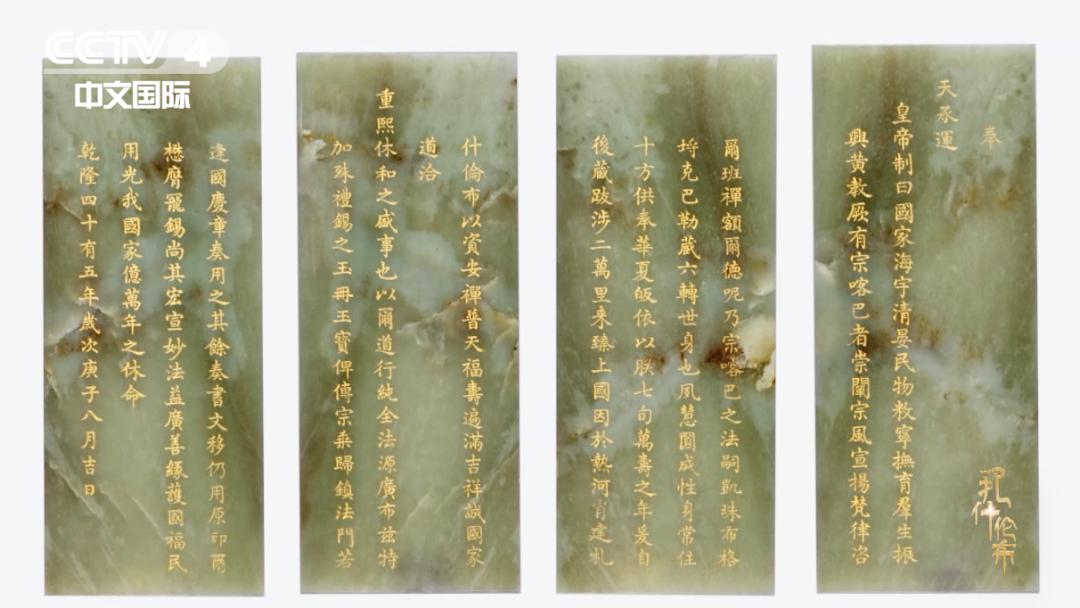 CCTV 4
中文国际
奉
天承運
皇帝制曰國家海宇清晏民物敉寧撫育羣生振
興黄教厥有宗喀巴者崇闡宗風宣揚梵律咨
爾班禪額爾德呢乃宗喀巴之法嗣凱珠布格
埒克巴勒藏六轉世身也夙慧圓成性身常住
十方供奉華夏皈依以朕七旬萬壽之年爰自
後藏跋涉二萬里来臻上國因於熱河肖建札
什倫布以資安禪普天福壽遍滿吉祥誠國家
道洽
重熙休和之盛事也以爾道行純全法源廣布兹特
加殊禮錫之玉冊玉寶俾傳宗乗歸鎮法門若
逢國慶章奏用之其餘奏書文移仍用原印爾
懋膺寵錫尚其宏宣妙法益廣善緣護國福民
用光我國家億萬年之休命
乾隆四十有五年歲次庚子八月吉日
扎什伦布